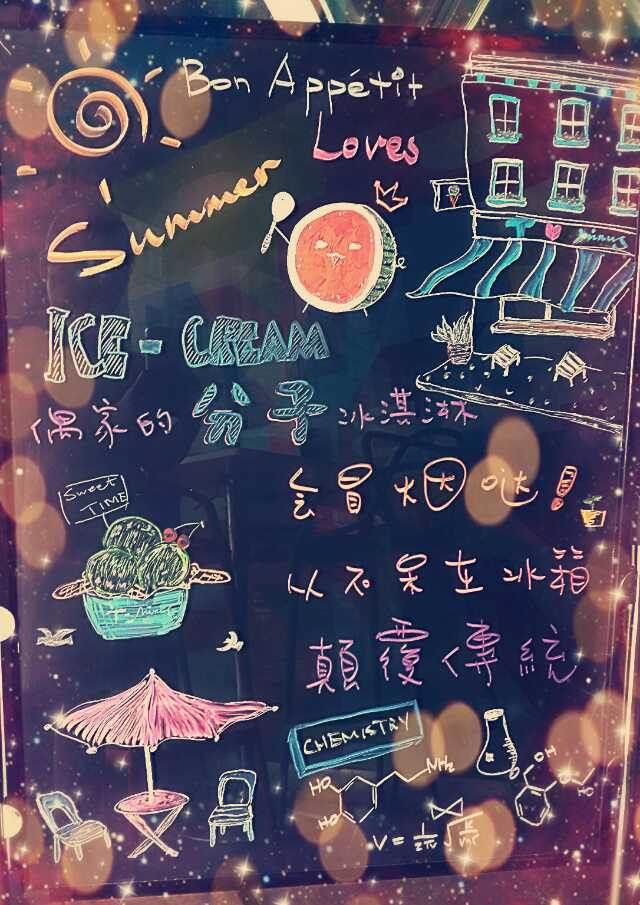 Bon Appétit
Loves
Summer
T ♥ minus
ICE-CREAM
偶家的分子冰淇淋
Sweet
TIME
会冒烟哒!
以不呆在冰箱
顛覆傳統
CHEMISTRY
HO
HO
NH₂
OH
V = 1/2π √k/m